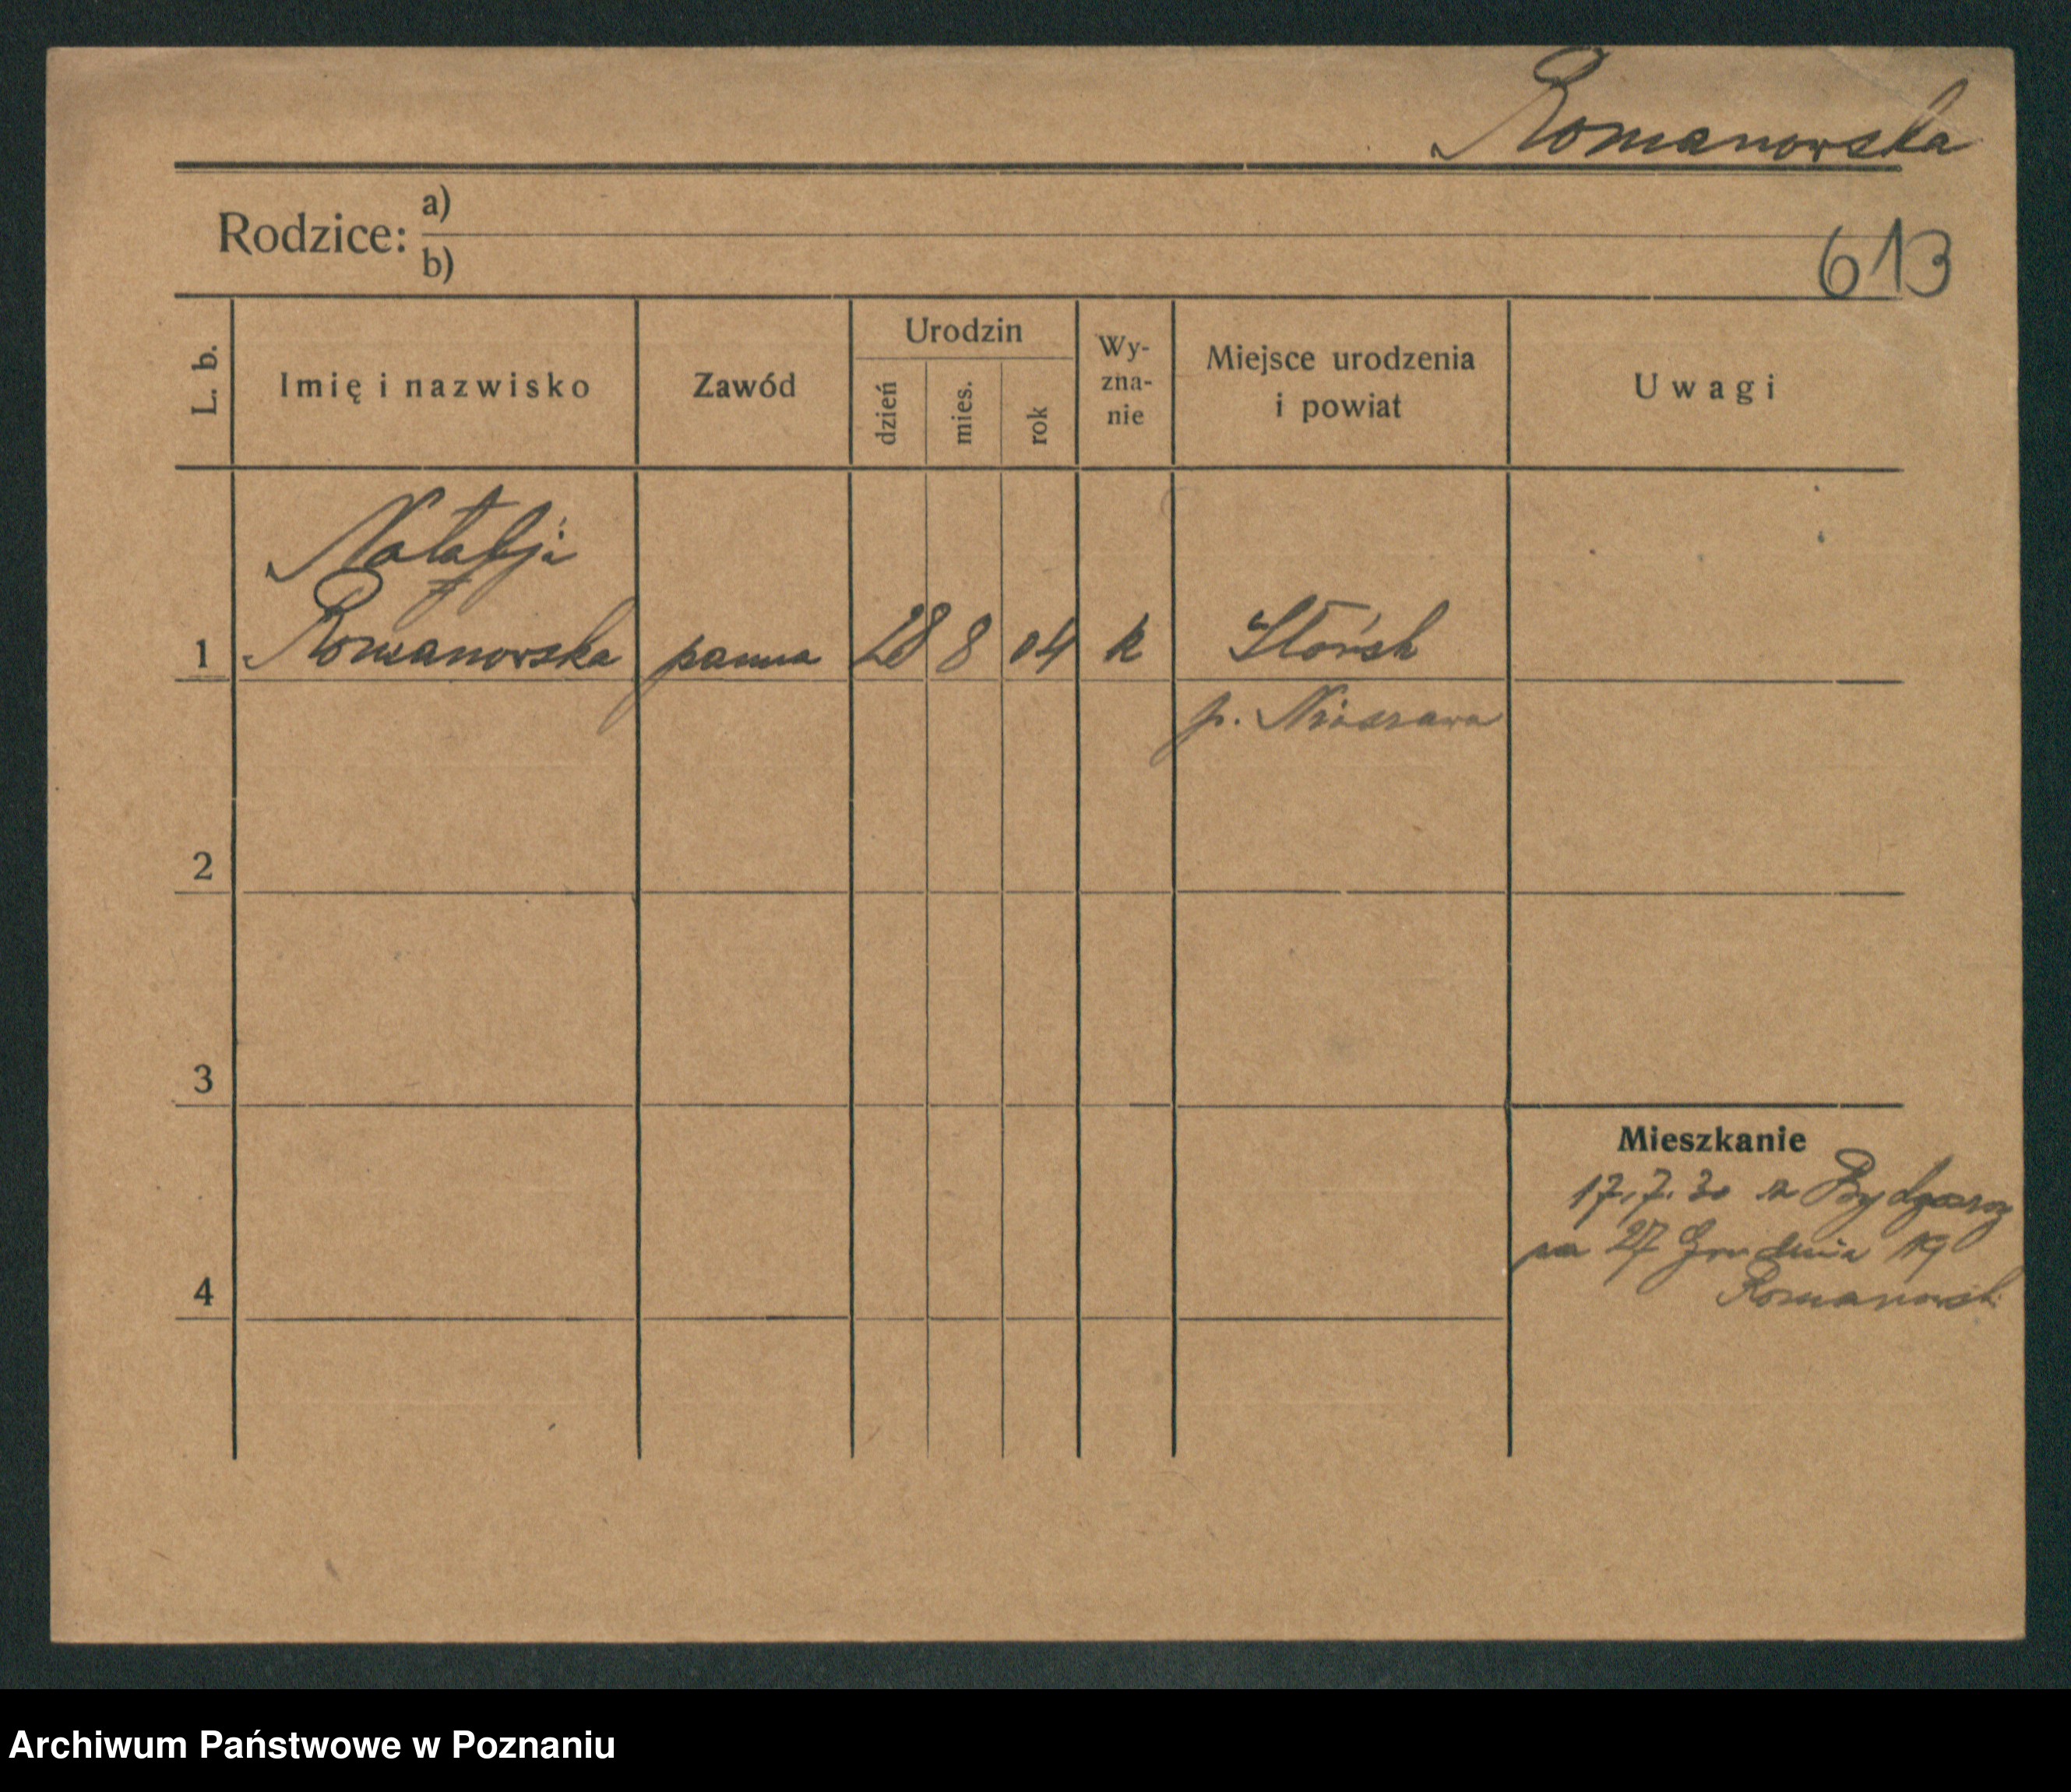 Romanowska
Rodzice: a)
b)
613
L. b.
Imię i nazwisko
Zawód
Urodzin
dzień
mies.
rok
Wy-
zna-
nie
Miejsce urodzenia
i powiat
Uwagi
Natalja
1 Romanowska panna 28 8 04 k Słońsk
p. Nieszawa
2
3
Mieszkanie
17.7.30 z Bydgoszcz
na 27 Grudnia 19
4
Romanowsk
Archiwum Państwowe w Poznaniu